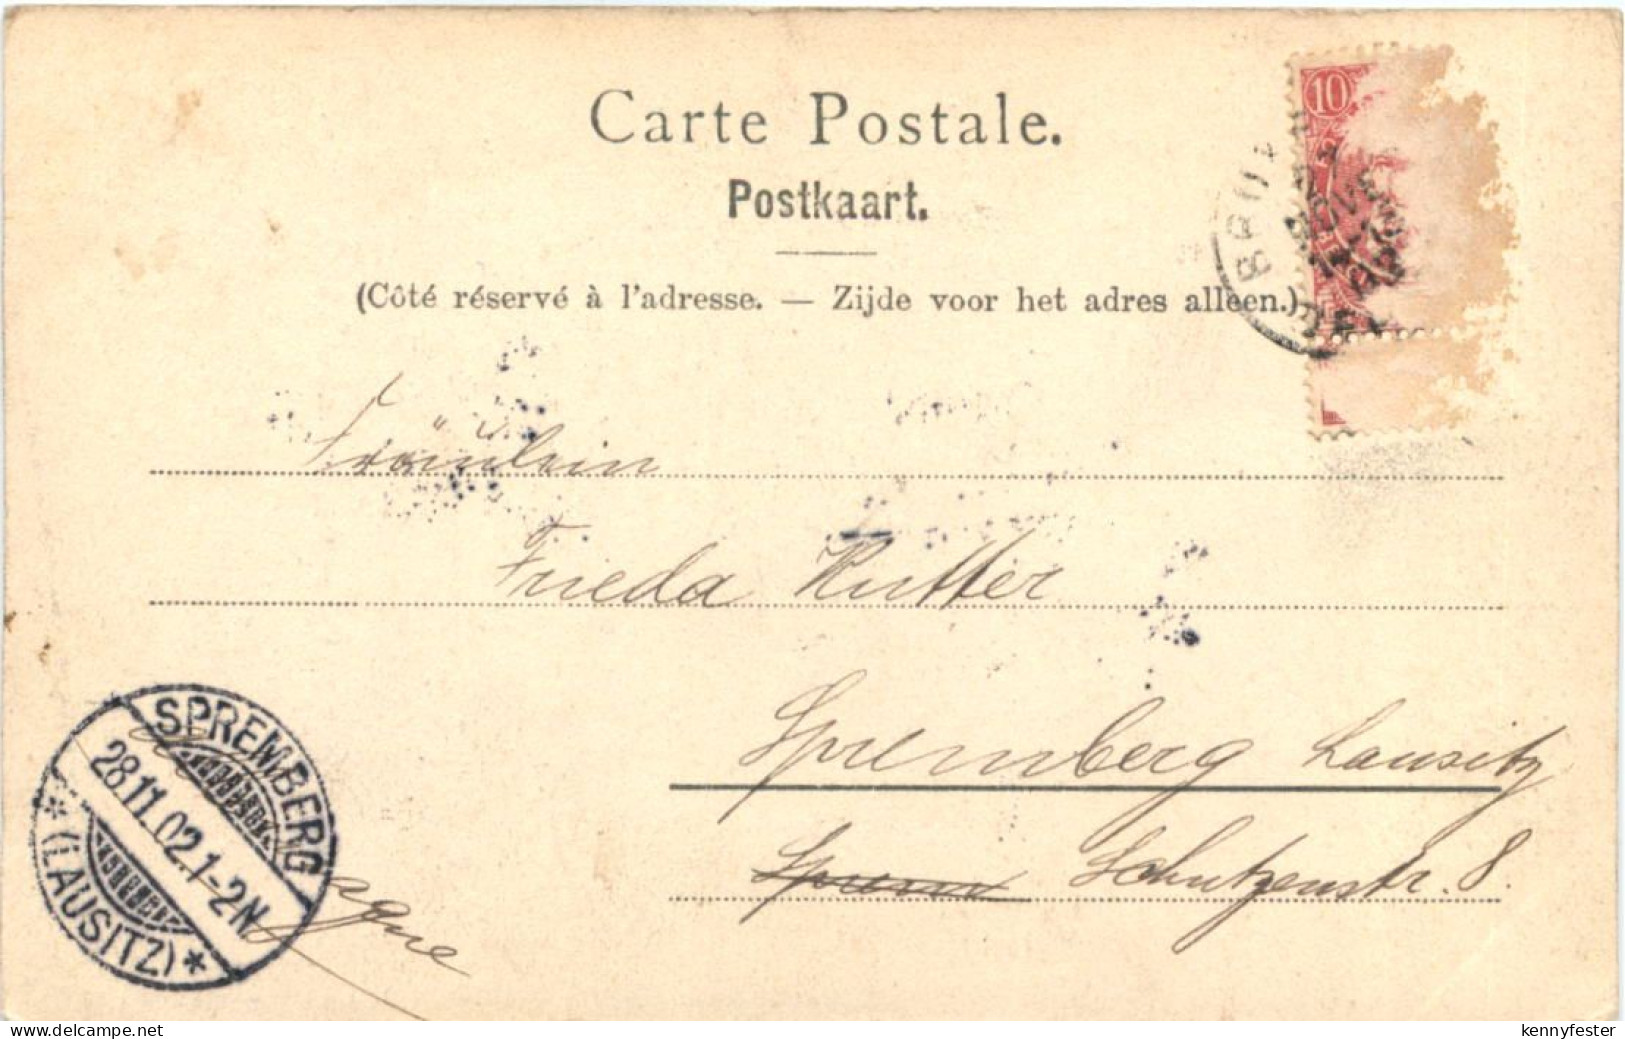 Carte Postale.
Postkaart.
(Côté réservé à l'adresse. — Zijde voor het adres alleen.)
10
Fräulein
Frieda Hutter
Spremberg Lausitz
Schutzenstr. 8.
SPREMBERG
28.11.02.1-2N.
* (LAUSITZ) *
www.delcampe.net
kennyfester